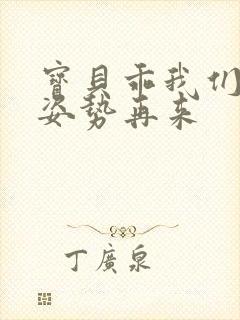 寶貝乖我们
姿势再来
丁廣泉